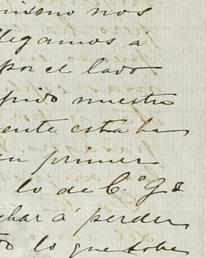 nos
llegamos á
por el lado
nuestro
ente estaba
un primer
lo de C.º G.e
char á perder
lo que tobe